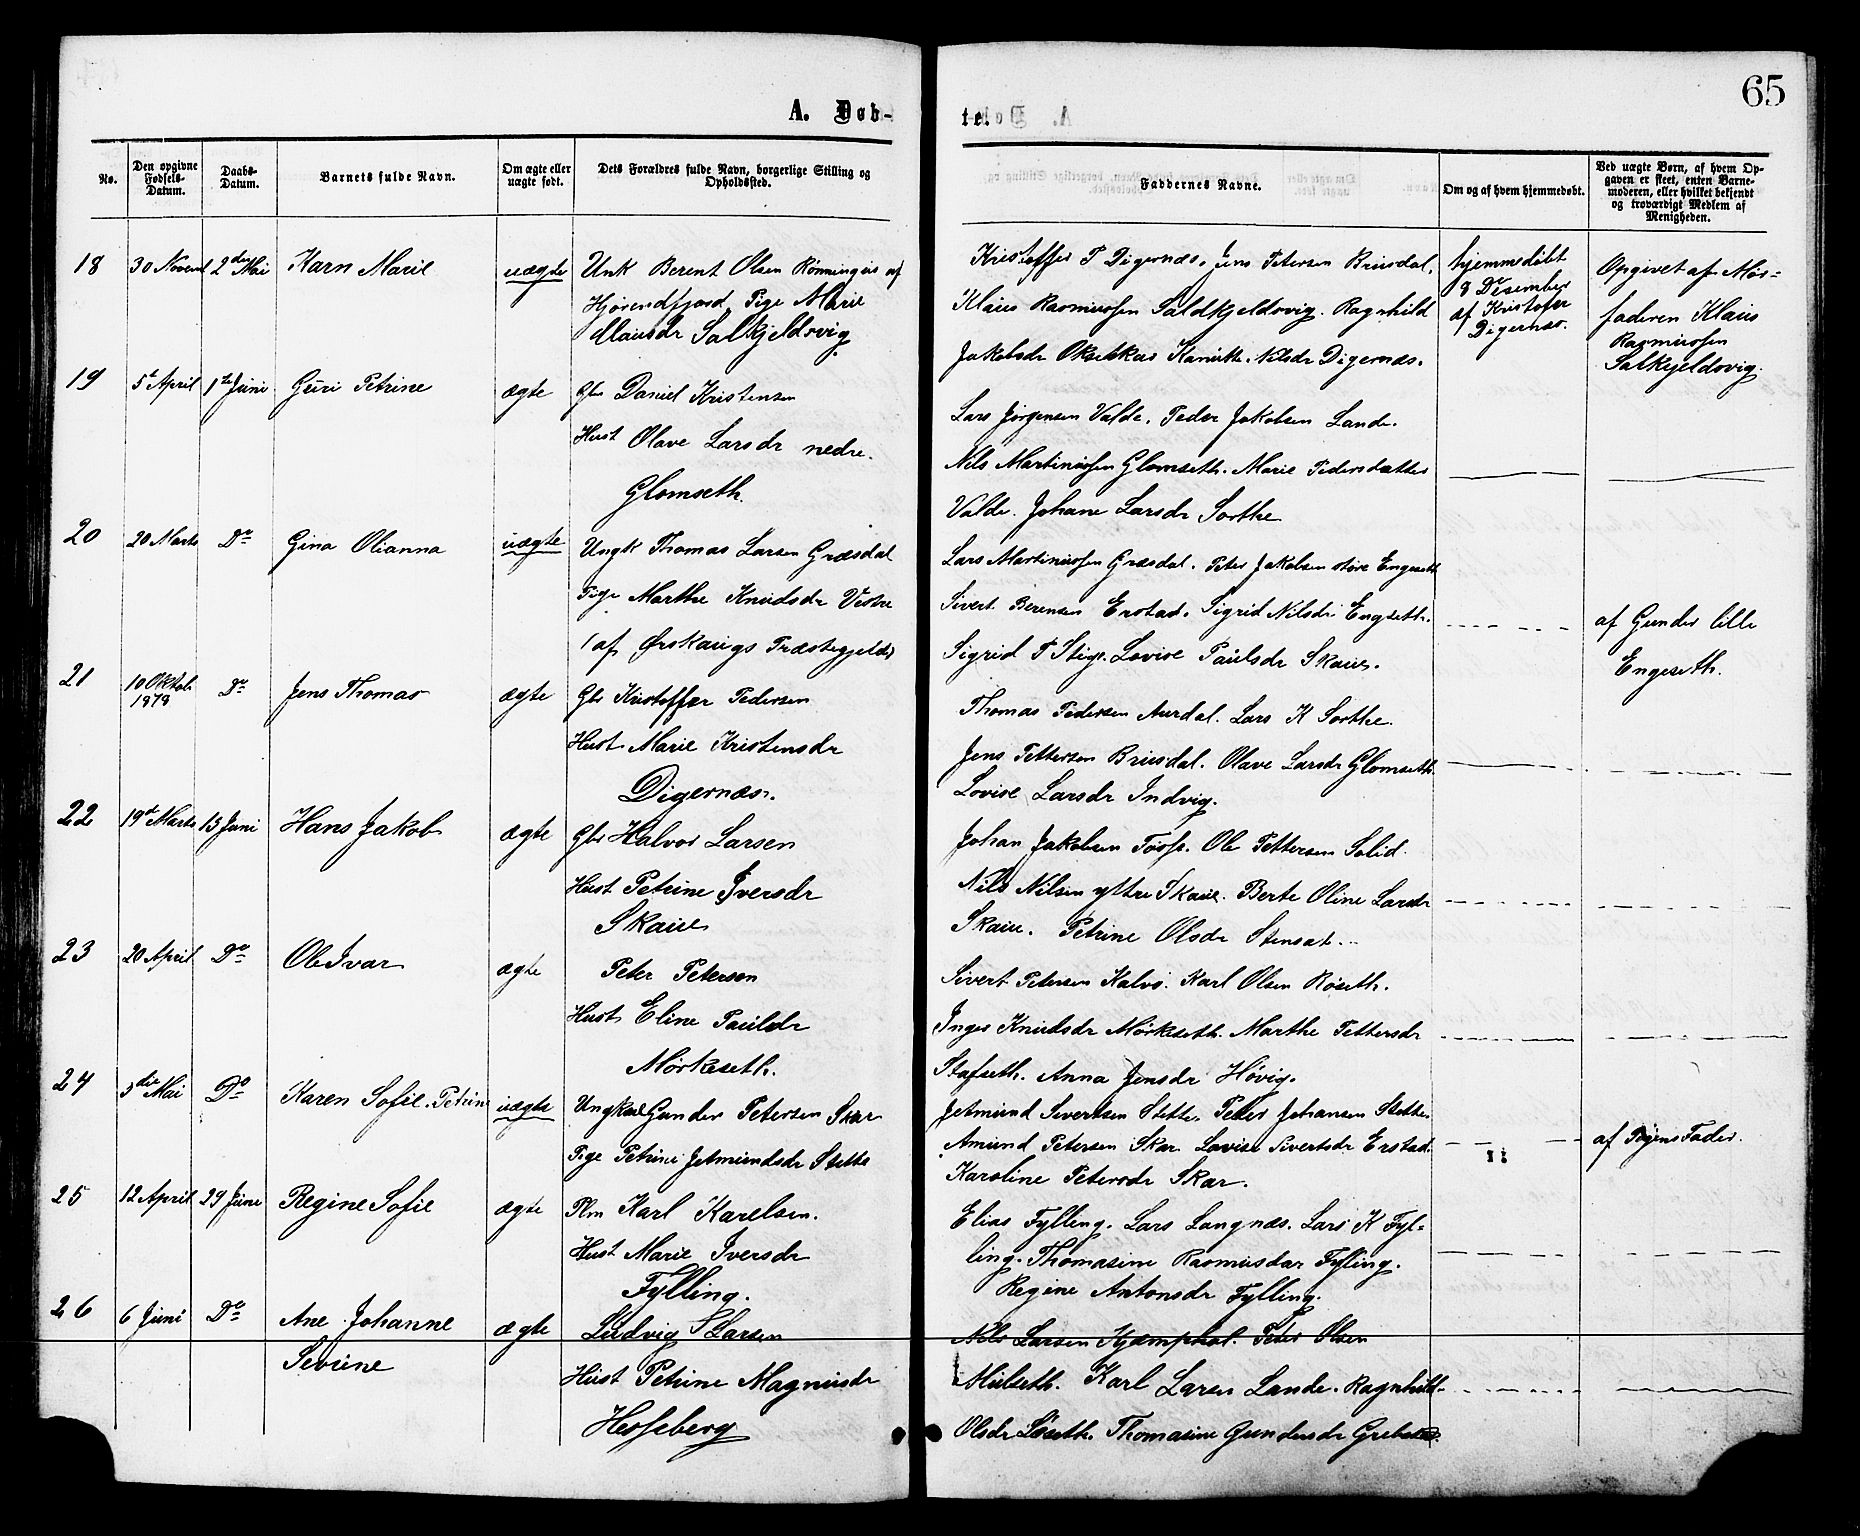 65
A. Døb-
te.
No.
Den opgivne Fødsels-Datum.
Daabs-Datum.
Barnets fulde Navn.
Om ægte eller uægte født.
Dets Forældres fulde Navn, borgerlige Stilling og Opholdssted.
Faddernes Navne.
Om og af hvem hjemmedøbt.
Ved uægte Børn, af hvem Opgaven er skeet, enten Barnemoderen, eller hvilket bekjendt og troværdigt Medlem af Menigheden.
18 30 Novemb 2den Mai Karn Marie uægte Unk Berent Olsen Rønningen af
Hjørendfjord, Pige Marie
Klausdr Salkjeldsvig
Kristoffer P Digernæs, Jens Petersen Brusdal,
Klaus Rasmussen Saldkjeldsvig. Ragnhild
Jakobsdr Nilsdr Digernæs.
hjemmedøbt
8 Desember
af Kristofer
Digernæs.
Opgivet af Mor-
faderen Klaus
Rasmussen
Salkjeldsvig.
19 5t April 1ste Juni Guri Petrine ægte Gbr Daniel Kristensen
Hust Olave Larsdr nedre
Glomseth.
Lars Jørgensen Valde. Peder Jakobsen Lande.
Nils Martinussen Glomseth. Marie Pedersdatter
Valde. Johane Larsdr Sorthe
20 20 Marts Do Gina Olianna uægte Ungk Thomas Larsen Græsdal
Pige Marthe Knudsdr Vestre
(af Ørskougs Præstegjeld)
Lars Martinussen Græsdal. Peter Jakobsen store Engeseth
Sivert Berensen Erstad. Sigrid Nilsdr Engseth.
Sigrid P Stige. Lovise Paulsdr Skaue.
af Gunder lille
Engeseth.
21 10 Oktob 1878 Do Jens Thomas ægte Gbr Kristoffer Pedersen
Hust Marie Kristensdr
Digernæs.
Thomas Pedersen Aurdal. Lars K Sorthe.
Jens Pettersen Brusdal. Olave Larsdr Glomseth.
Lovise Larsdr Indvig.
22 19de Marts 13 Juni Hans Jakob ægte Gbr Halvor Larsen
Hust Petrine Iversdr
Skaue
Johan Jakobsen Ole Pettersen Solid.
Nils Nilsen yttre Skaue. Berte Oline Larsdr
Skaue. Petrine Olsdr Stensæt.
23 20 April Do Ole Ivar ægte Peter Peterson
Hust Eline Paulsdr
Mørkeseth.
Sivert Petersen Kalvø. Karl Olsen Røseth.
Inger Knudsdr Mørkeseth. Marthe Pettersdr
Stafseth. Anna Jensdr Høvig.
24 3die Mai Do Karen Sofie Petrine uægte Ungkarl Gunder Petersen Skar
Pige Petrine Jetmundsdr Stette
Jetmund Sivertsen Stette. Peter Johansen Stette.
Amund Petersen Skar. Lovise Sivertsdr Erstad.
Karoline Petersdr Skar.
af Pigens Fader.
25 12 April 29 Juni Regine Sofie ægte Plm Karl Karelsen.
Hust Marie Iversdr
Fylling.
Elias Fylling. Lars Langnæs. Lars K Fyl-
ling. Thomasine Rasmusdar Fylling.
Regine Antonsdr Fylling.
26 6 Juni Do Ane Johanne ægte Ludvig Larsen
Sevrine
Hust Petrine Magnusdr
Hesseberg
Nils Larsen Kjæmphol. Peter Olsen
Mulseth. Karl Larsen Lande. Ragnhild
Olsdr Løseth. Thomasine Gundersdr